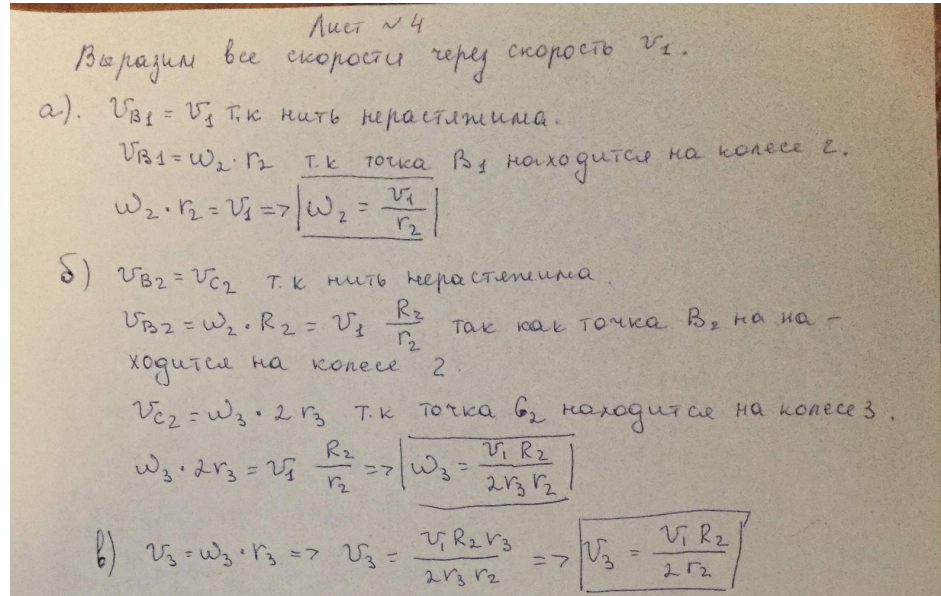 Лист №4
Выразим все скорости через скорость v₁.
а). v_B1 = v₁ т.к нить нерастяжима.
v_B1 = ω₂ · r₂ т.к точка B₁ находится на колесе 2.
ω₂ · r₂ = v₁ => ω₂ = v₁/r₂
б) v_B2 = v_C2 т.к нить нерастяжима
v_B2 = ω₂ · R₂ = v₁ R₂/r₂ так как точка B₂ на на-
ходится на колесе 2.
v_C2 = ω₃ · 2r₃ т.к точка C₂ находится на колесе 3.
ω₃ · 2r₃ = v₁ R₂/r₂ => ω₃ = v₁ R₂/2r₃ r₂
в) v₃ = ω₃ · r₃ => v₃ = v₁ R₂ r₃/2r₃ r₂ => v₃ = v₁ R₂/2r₂